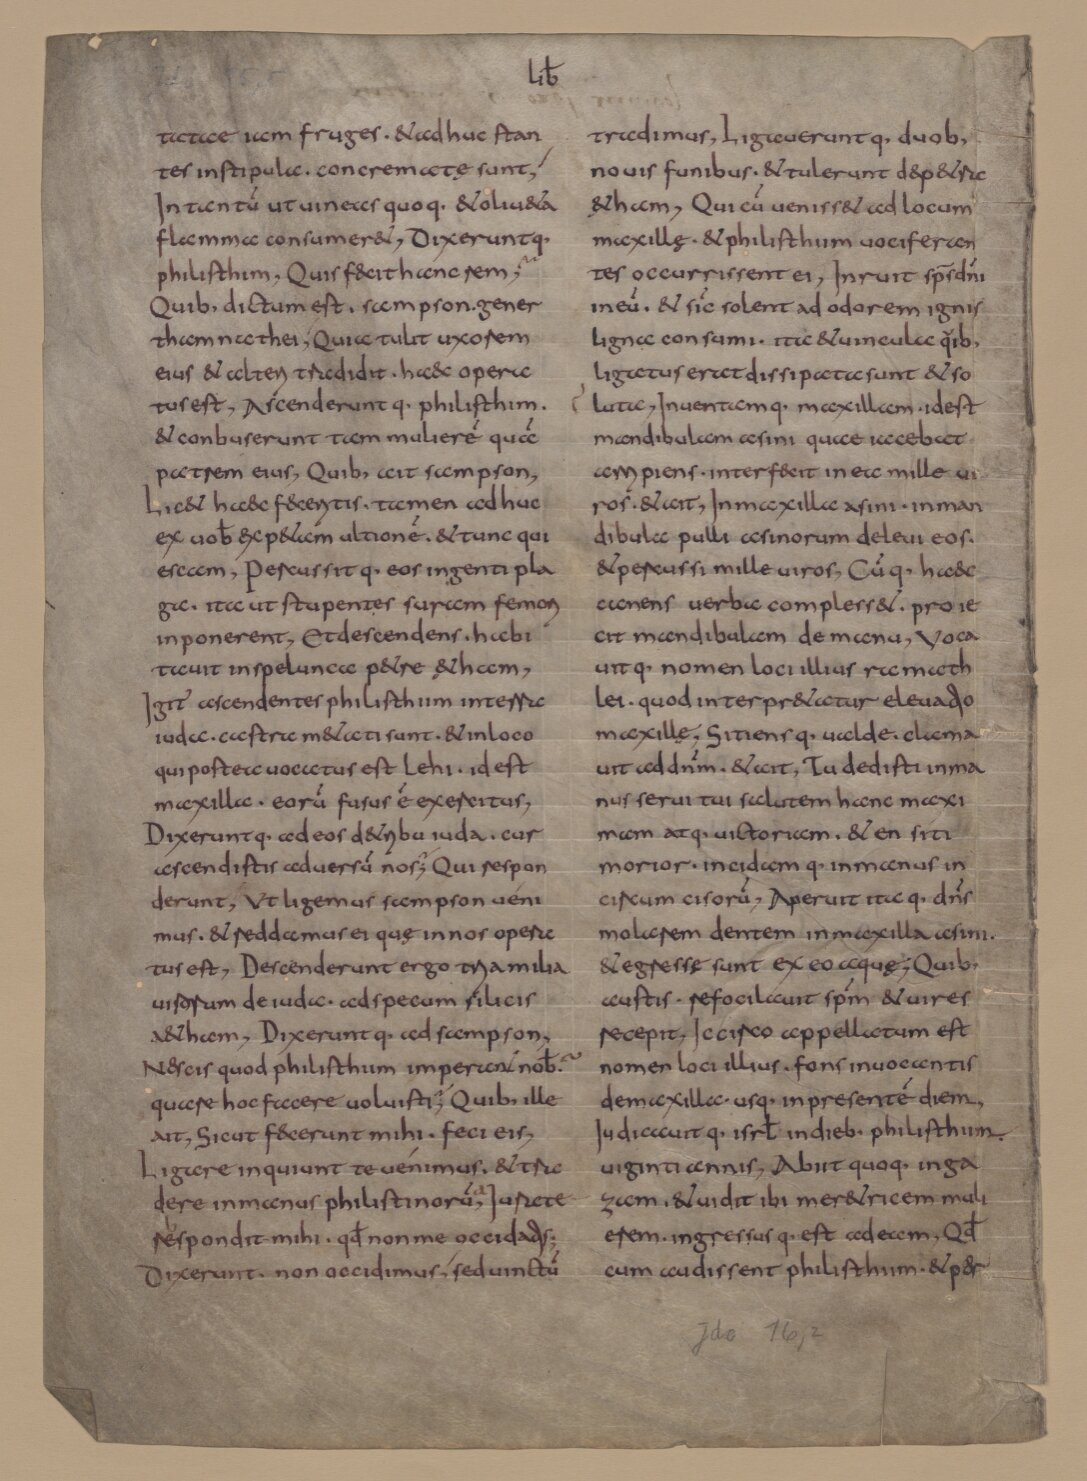 lib̄
tatae iam fruges. & adhuc stan
tes in stipula. concrematę sunt,
In tantū ut uineas quoq. & oliu&a
flamma consumer&, Dixeruntq.
philisthim, Quis fecit hanc rem,
Quib, dictum est. sampson. gener
thamnathei, Quia tulit uxorem
eius & alteri tradidit. haec opera
tus est, Ascenderunt q. philisthim.
& conbuserunt tam mulierē quā
patrem eius, Quib, ait sampson,
Lic& haec feceritis. tamen adhuc
ex uob̄ exp&am ultionē. & tunc qui
escam, Percussit q. eos ingenti pla
ga. ita ut stupentes suram femori
inponerent, Et descendens. habi
tauit in spelunca p&re &ham,
Igit̄ ascendentes philisthiim in terra
iuda. castra m&ati sunt. & in loco
qui postea uocatus est Lehi. id est
maxilla. eorū fusus ē exercitus,
Dixeruntq. ad eos d&ribu iuda. cur
ascendistis aduersū nos; Qui respon
derunt, Ut ligemus sampson ueni
mus. & reddamus ei quę in nos opera
tus est, Descenderunt ergo tria milia
uirorum de iuda. ad specum silicis
a&ham, Dixerunt q. ad sampson,
Nescis quod philisthiim imperent nob̄.
quare hoc facere uoluisti; Quib, ille
ait, Sicut fecerunt mihi. feci eis,
Ligare inquiunt te uenimus. & tra
dere in manus philistinorū, Iurate
respondit mihi. qd̄ non me occidatis;
Dixerunt. non occidimus, sed uinctū
tradimus, Ligauerunt q. duob,
nouis funibus. & tulerunt de p&ra
&ham, Qui cū ueniss& ad locum
maxillę. & philisthiim uociferan
tes occurrissent ei, Inruit sp̄s dn̄i
in eū. & sic̄ solent ad odorem ignis
ligna consumi. ita & uincula q̄ib,
ligatus erat dissipata sunt & so
luta, Inuentam q. maxillam. id est
mandibulam asini quae iacebat
arripiens. interfecit in ea mille ui
ros. & ait, In maxilla asini. in man
dibula pulli asinorum deleui eos.
& percussi mille uiros, Cū q. haec
canens uerba compless&. proie
cit mandibulam de manu, Voca
uit q. nomen loci illius ramath
lei. quod interpr&atur eleuatio
maxillę, Sitiens q. ualde. clama
uit ad dn̄m. & ait, Tu dedisti in ma
nus serui tui salutem hanc maxi
mam atq. uictoriam. & en siti
morior. incidam q. in manus in
circumcisorū, Aperuit ita q. dn̄s
molarem dentem in maxilla asini.
& egressę sunt ex eo aquę; Quib,
austis. refocilauit sp̄m & uires
recepit, Iccirco appellatum est
nomen loci illius. fons inuocantis
de maxilla. usq. in presentē diem,
Iudicauit q. isrl̄ in dieb. philisthiim.
uiginti annis, Abiit quoq. in ga
zam. & uidit ibi mer&ricem muli
erem. ingressus q. est ad eam, Qd̄
cum audissent philisthiim. & per
Jdc 16,2